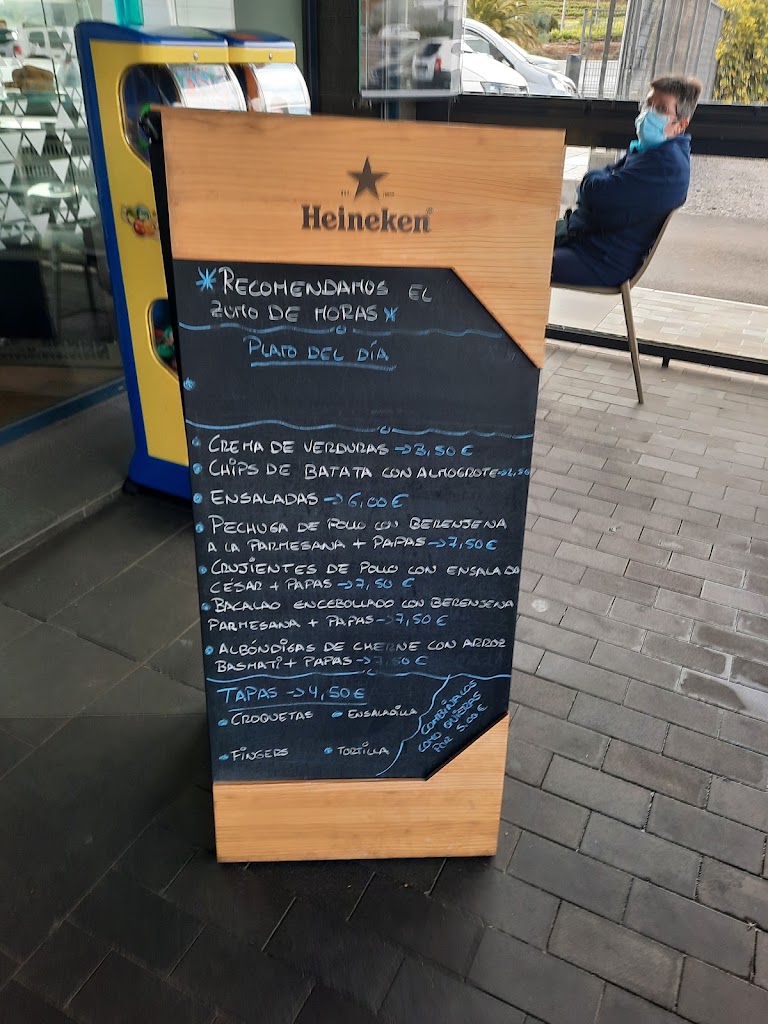 Heineken
*RECOMENDAMOS EL
ZUMO DE MORAS*
PLATO DEL DÍA
CREMA DE VERDURAS → 3,50 €
CHIPS DE BATATA CON ALMOGROTE →
ENSALADAS → 6,00 €
PECHUGA DE POLLO CON BERENJENA
A LA PARMESANA + PAPAS → 7,50 €
CRUJIENTES DE POLLO CON ENSALADA
CÉSAR + PAPAS → 7,50 €
BACALAO ENCEBOLLADO CON BERENJENA
PARMESANA + PAPAS → 7,50 €
ALBÓNDIGAS DE CHERNE CON ARROZ
BASMATI + PAPAS → 7,50 €
TAPAS → 4,50 €
CROQUETAS ENSALADILLA
FINGERS TORTILLA
COMBINALOS
COMO QUIERAS
POR 5.00 €